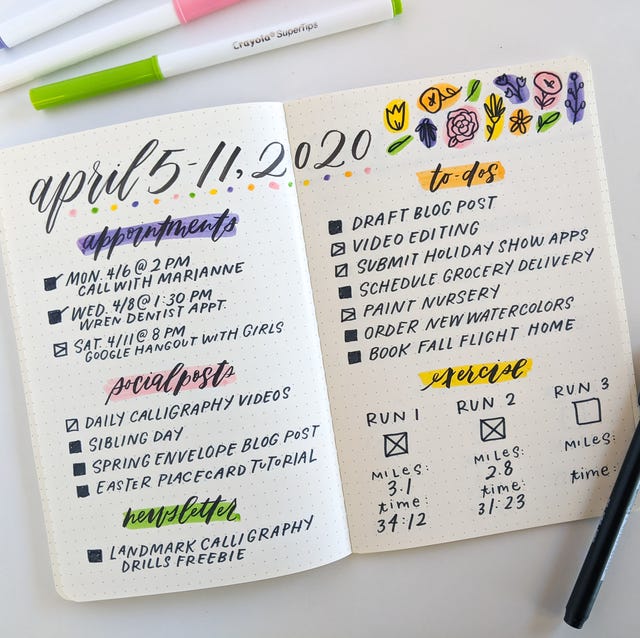 Crayola® SuperTips
april 5-11, 2020
appointments
MON. 4/6 @ 2 PM
CALL WITH MARIANNE
WED. 4/8 @ 1:30 PM
WREN DENTIST APPT.
SAT. 4/11 @ 8 PM
GOOGLE HANGOUT WITH GIRLS
social posts
DAILY CALLIGRAPHY VIDEOS
SIBLING DAY
SPRING ENVELOPE BLOG POST
EASTER PLACECARD TUTORIAL
newsletter
LANDMARK CALLIGRAPHY
DRILLS FREEBIE
to-dos
DRAFT BLOG POST
VIDEO EDITING
SUBMIT HOLIDAY SHOW APPS
SCHEDULE GROCERY DELIVERY
PAINT NURSERY
ORDER NEW WATERCOLORS
BOOK FALL FLIGHT HOME
exercise
RUN 1
MILES:
3.1
time:
34:12
RUN 2
MILES:
2.8
time:
31:23
RUN 3
MILES:
time: